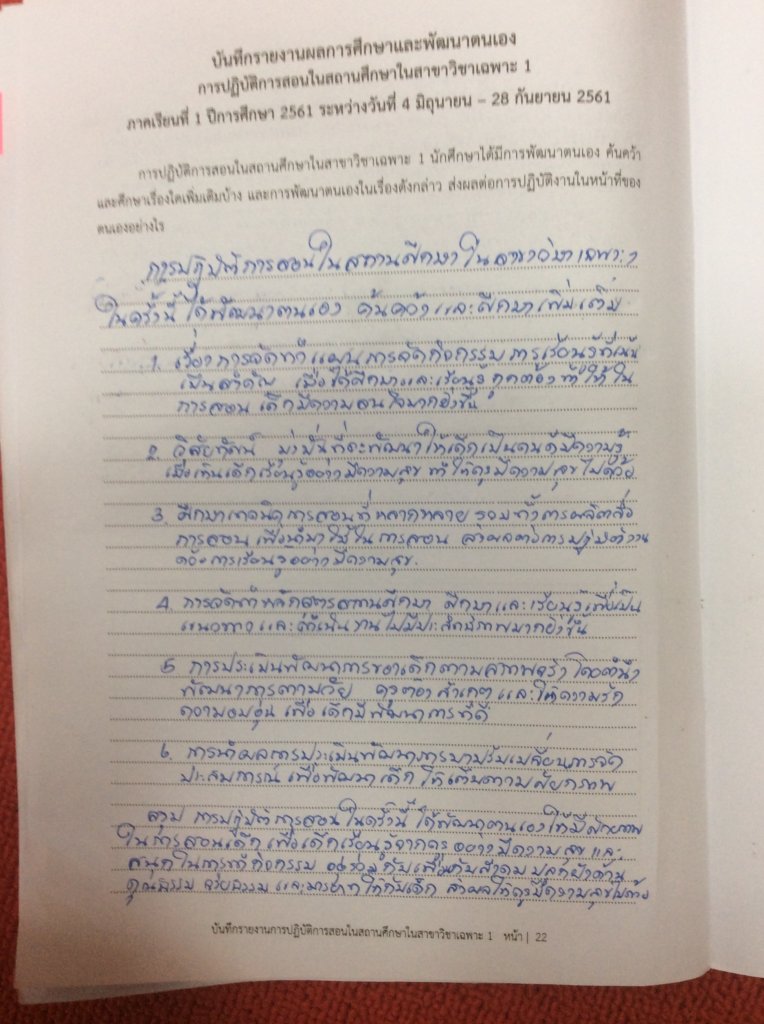 บันทึกรายงานผลการศึกษาและพัฒนาตนเอง
การปฏิบัติการสอนในสถานศึกษาในสาขาวิชาเฉพาะ 1
ภาคเรียนที่ 1 ปีการศึกษา 2561 ระหว่างวันที่ 4 มิถุนายน – 28 กันยายน 2561
การปฏิบัติการสอนในสถานศึกษาในสาขาวิชาเฉพาะ 1 นักศึกษาได้มีการพัฒนาตนเอง ค้นคว้า
และศึกษาเรื่องใดเพิ่มเติมบ้าง และการพัฒนาตนเองในเรื่องดังกล่าว ส่งผลต่อการปฏิบัติงานในหน้าที่ของ
ตนเองอย่างไร
การปฏิบัติการสอนในสถานศึกษาในสาขาวิชาเฉพาะ 1
ในครั้งนี้ ได้พัฒนาตนเอง ค้นคว้าและศึกษาเพิ่มเติม
1. เรื่องการจัดทำแผนการจัดกิจกรรมการเรียนรู้ที่เน้น
เป็นสำคัญ เมื่อได้ศึกษาและเรียนรู้ ถูกต้อง ทำให้ใน
การสอน เด็กมีความสนใจมากยิ่งขึ้น
2. วิสัยทัศน์ มุ่งมั่นที่จะพัฒนาให้เด็กเป็นคนดีมีความรู้
เมื่อเห็นเด็กเรียนรู้อย่างมีความสุข ทำให้ครูมีความสุขไปด้วย
3. ศึกษาเทคนิคการสอนที่หลากหลาย รวมทั้งการผลิตสื่อ
การสอน เพื่อนำมาใช้ในการสอน ส่งผลต่อการปฏิบัติงาน
ต่อการเรียนรู้อย่างมีความสุข.
4. การจัดทำหลักสูตรสถานศึกษา ศึกษาและเรียนรู้เพื่อเป็น
แนวทางและดำเนินงานให้มีประสิทธิภาพมากยิ่งขึ้น
5. การประเมินพัฒนาการของเด็กตามสภาพจริง โดยคำนึง
พัฒนาการตามวัย ครูต้องสังเกต และให้ความรัก
ความอบอุ่น เพื่อเด็กมีพัฒนาการที่ดี
6. การนำผลการประเมินพัฒนาการมาปรับเปลี่ยนการจัด
ประสบการณ์ เพื่อพัฒนาเด็กให้เต็มตามศักยภาพ
สรุป การปฏิบัติการสอนในครั้งนี้ ได้พัฒนาตนเองให้มีศักยภาพ
ในการสอนเด็ก เพื่อเด็กเรียนรู้จากครู อย่างมีความสุข และ
สนุกในการทำกิจกรรม อยู่ร่วมกับเพื่อนกับสังคม ปลูกฝังด้าน
คุณธรรม จริยธรรม และมารยาทให้กับเด็ก ส่งผลให้ครูมีความสุขไปด้วย
บันทึกรายงานการปฏิบัติการสอนในสถานศึกษาในสาขาวิชาเฉพาะ 1 หน้า | 22